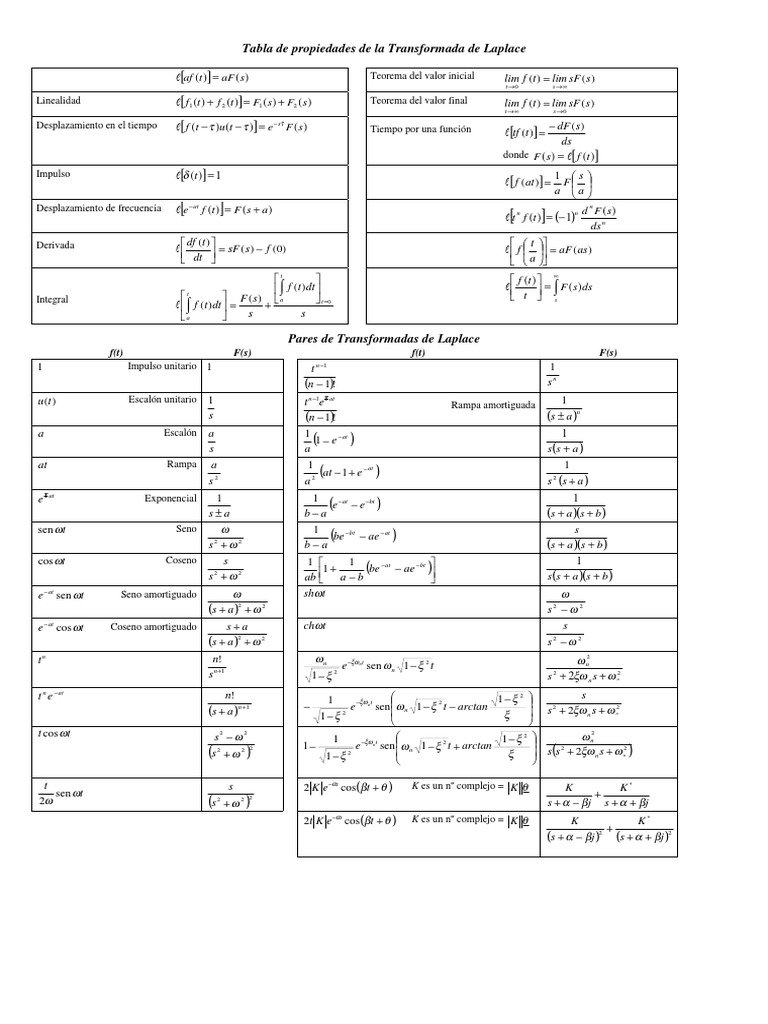 Tabla de propiedades de la Transformada de Laplace
ℓ[af(t)] = aF(s)
Linealidad ℓ[f₁(t) + f₂(t)] = F₁(s) + F₂(s)
Desplazamiento en el tiempo ℓ[f(t − τ)u(t − τ)] = e^{−sτ} F(s)
Impulso ℓ[δ(t)] = 1
Desplazamiento de frecuencia ℓ[e^{−at} f(t)] = F(s + a)
Derivada ℓ[df(t)/dt] = sF(s) − f(0)
Integral ℓ[∫_a^t f(t)dt] = F(s)/s + [∫_a^t f(t)dt]_{t=0}/s
Teorema del valor inicial lim_{t→0} f(t) = lim_{s→∞} sF(s)
Teorema del valor final lim_{t→∞} f(t) = lim_{s→0} sF(s)
Tiempo por una función ℓ[tf(t)] = −dF(s)/ds
donde F(s) = ℓ[f(t)]
ℓ[f(at)] = 1/a F(s/a)
ℓ[tⁿ f(t)] = (−1)ⁿ dⁿF(s)/dsⁿ
ℓ[f(t/a)] = aF(as)
ℓ[f(t)/t] = ∫_s^∞ F(s)ds
Pares de Transformadas de Laplace
f(t) F(s)
1 Impulso unitario 1
u(t) Escalón unitario 1/s
a Escalón a/s
at Rampa a/s²
e^{∓at} Exponencial 1/(s ± a)
sen ωt Seno ω/(s² + ω²)
cos ωt Coseno s/(s² + ω²)
e^{−at} sen ωt Seno amortiguado ω/((s + a)² + ω²)
e^{−at} cos ωt Coseno amortiguado (s + a)/((s + a)² + ω²)
tⁿ n!/s^{n+1}
tⁿe^{−at} n!/(s + a)^{n+1}
t cos ωt (s² − ω²)/(s² + ω²)²
t/2ω sen ωt s/(s² + ω²)²
f(t) F(s)
t^{n−1}/(n − 1)! 1/sⁿ
t^{n−1}e^{∓at}/(n − 1)! Rampa amortiguada 1/(s ± a)ⁿ
1/a (1 − e^{−at}) 1/(s(s + a))
1/a² (at − 1 + e^{−at}) 1/(s²(s + a))
1/(b − a) (e^{−at} − e^{−bt}) 1/((s + a)(s + b))
1/(b − a) (be^{−bt} − ae^{−at}) s/((s + a)(s + b))
1/ab [1 + 1/(a − b) (be^{−at} − ae^{−bt})] 1/(s(s + a)(s + b))
shωt ω/(s² − ω²)
chωt s/(s² − ω²)
ωₙ/√(1 − ξ²) e^{−ξωₙt} sen ωₙ√(1 − ξ²) t ωₙ²/(s² + 2ξωₙs + ωₙ²)
− 1/√(1 − ξ²) e^{−ξωₙt} sen(ωₙ√(1 − ξ²) t − arctan √(1 − ξ²)/ξ) s/(s² + 2ξωₙs + ωₙ²)
1 − 1/√(1 − ξ²) e^{−ξωₙt} sen(ωₙ√(1 − ξ²) t + arctan √(1 − ξ²)/ξ) ωₙ²/(s(s² + 2ξωₙs + ωₙ²))
2|K|e^{−αt} cos(βt + θ) K es un nº complejo = |K|θ K/(s + α − βj) + K*/(s + α + βj)
2t|K|e^{−αt} cos(βt + θ) K es un nº complejo = |K|θ K/(s + α − βj)² + K*/(s + α + βj)²